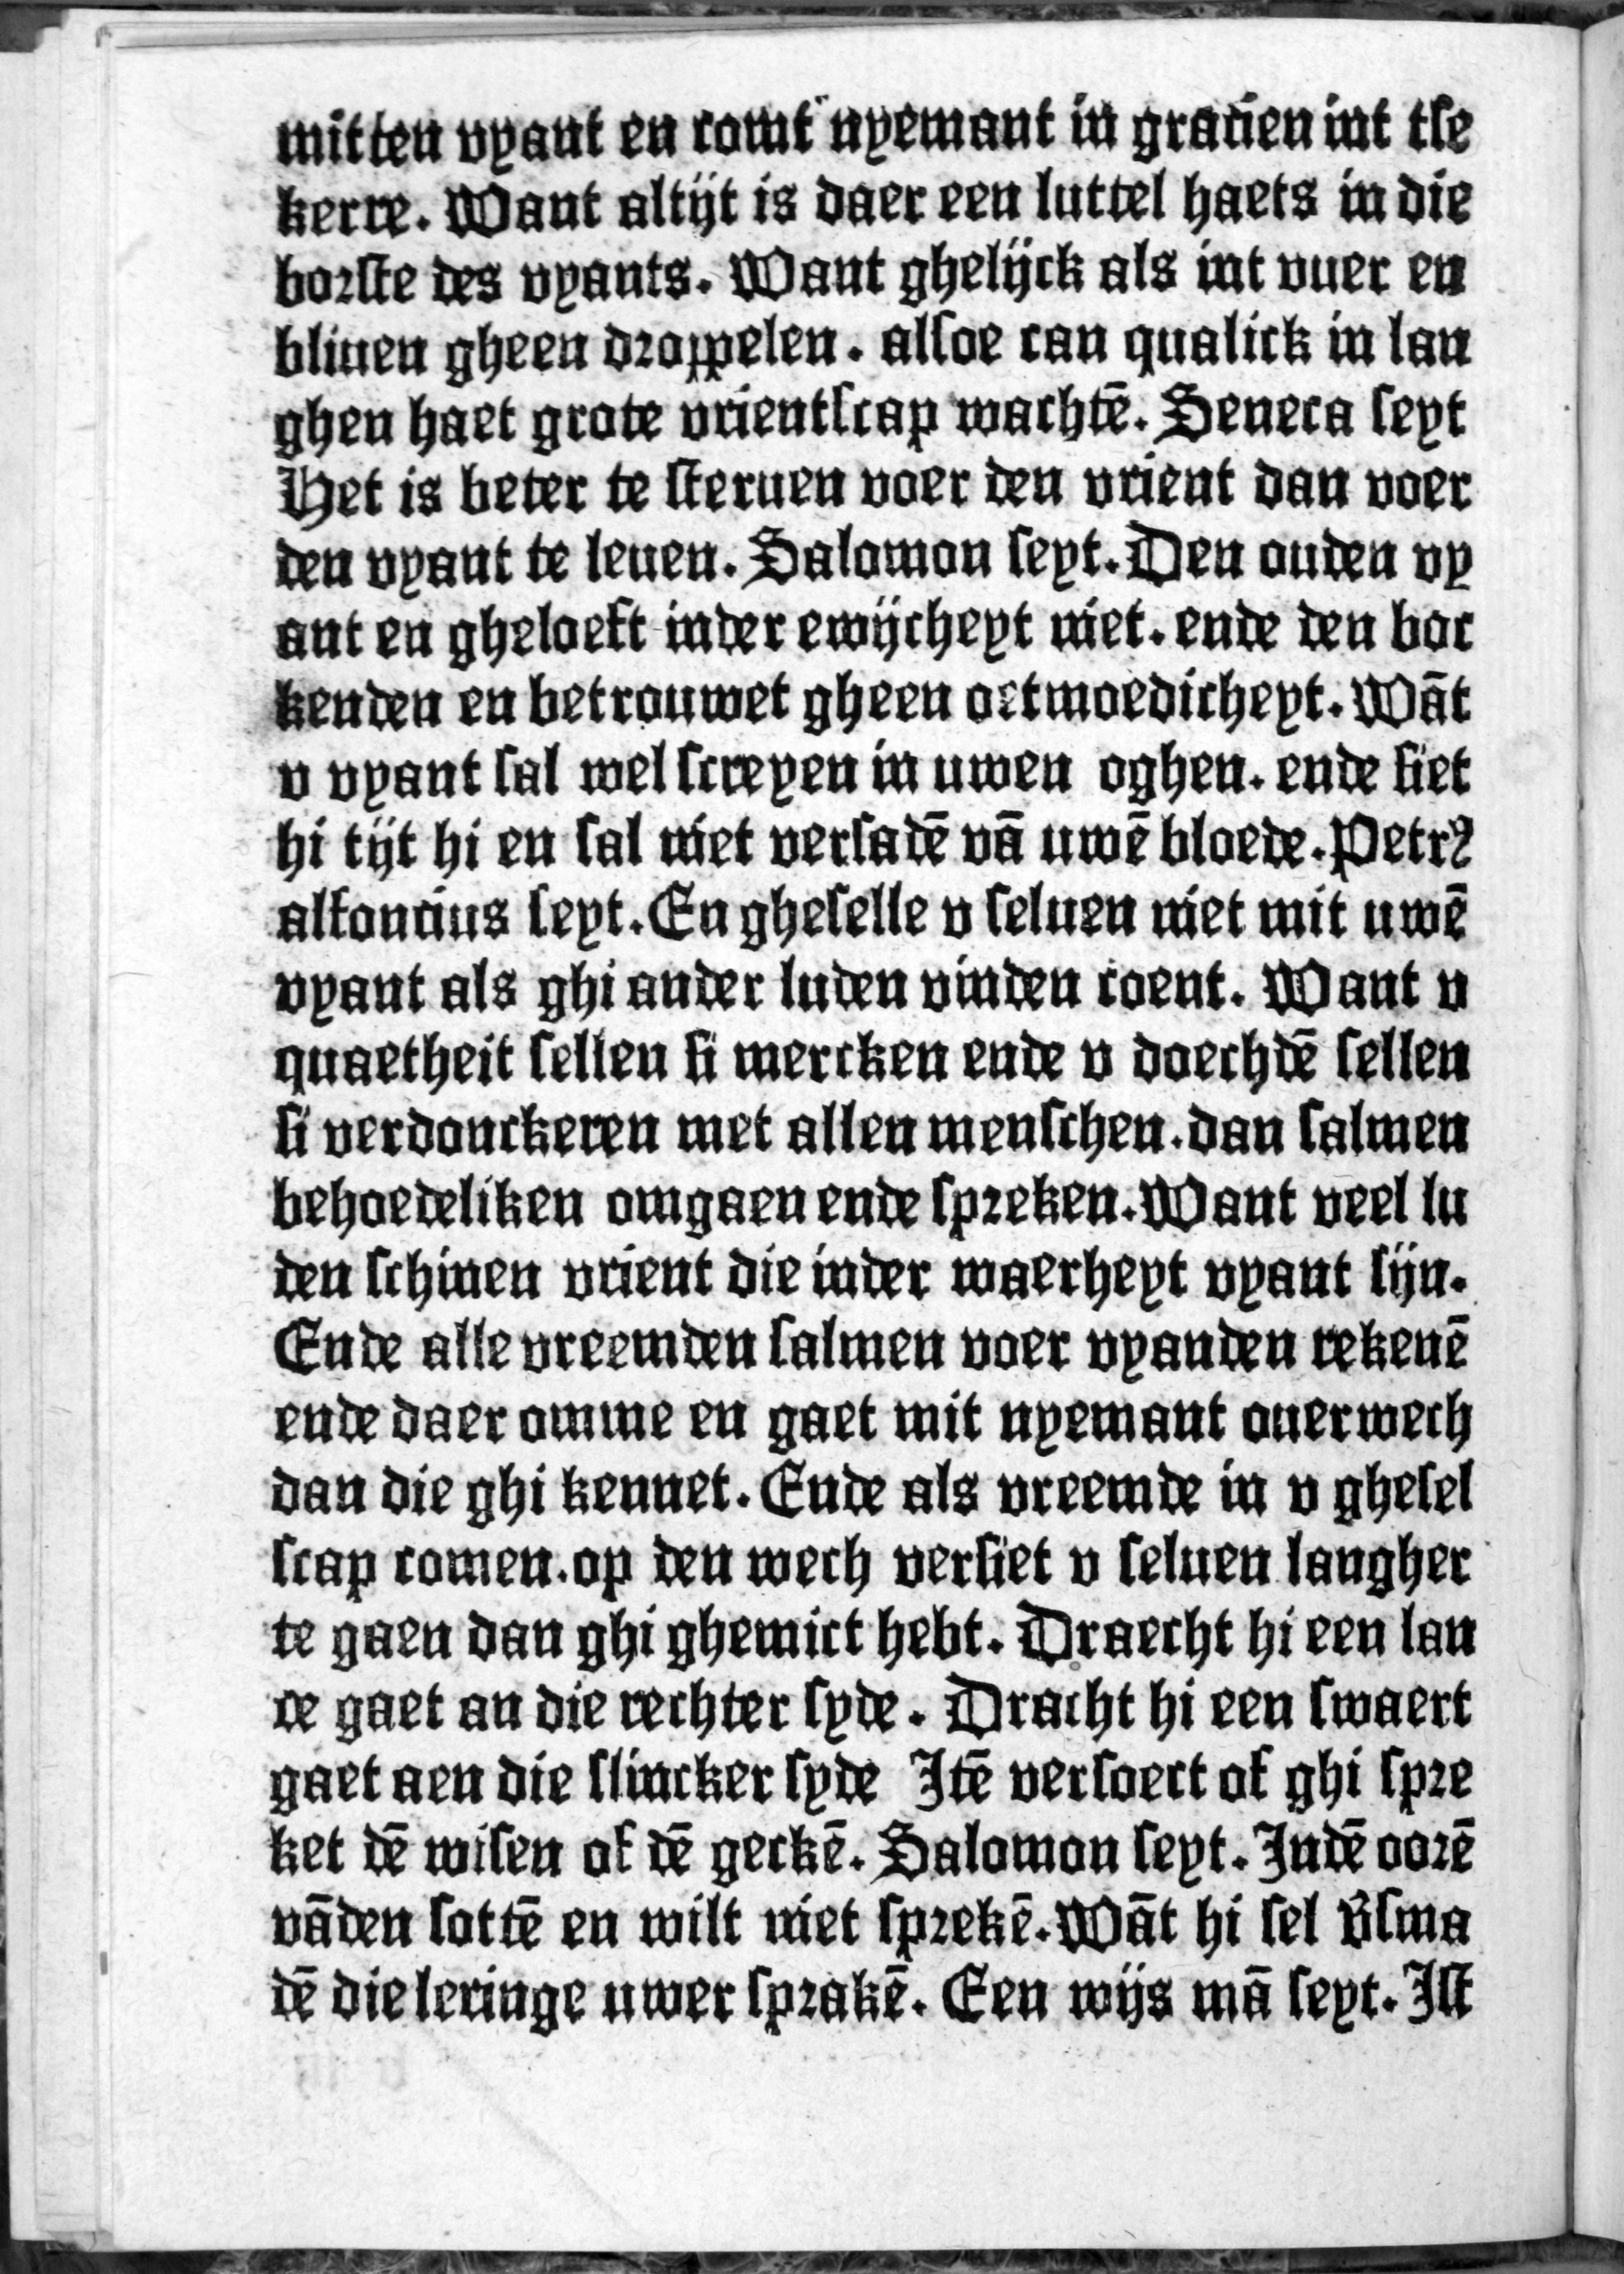 mitten vyant en comt nyemant in gracien int tſe
kerre. Want altijt is daer een luttel haets in die
borſte des vyants. Want ghelijck als int vuer en
bliuen gheen droppelen. alſoe can qualick in lan
ghen haet grote vrientſcap wachtē. Seneca ſeyt
Het is beter te ſteruen voer den vrient dan voer
den vyant te leuen. Salomon ſeyt. Den ouden vy
ant en gheloeft inder ewijcheyt niet. ende den bor
kenden en betrouwet gheen oetmoedicheyt. Wāt
v vyant ſal wel ſcreyen in uwen oghen. ende ſiet
hi tijt hi en ſal niet verſadē vā uwē bloede. Petrꝰ
alfoncius ſeyt. En gheſelle v ſeluen niet mit uwē
vyant als ghi ander luden vinden coent. Want v
quaetheit ſellen ſi mercken ende v doechdē ſellen
ſi verdonckeren met allen menſchen. dan ſalmen
behoedeliken omgaen ende ſpreken. Want veel lu
den ſchinen vrient die inder waerheyt vyant ſijn.
Ende alle vreemden ſalmen voer vyanden rekenē
ende daer omme en gaet mit nyemant ouer wech
dan die ghi kennet. Ende als vreemde in v gheſel
ſcap comen. op den wech verſiet v ſeluen langher
te gaen dan ghi ghemict hebt. Draecht hi een lan
ce gaet an die rechter ſyde. Dracht hi een ſwaert
gaet aen die ſlincker ſyde Itē verſoect of ghi ſpre
ket dē wiſen of dē geckē. Salomon ſeyt. Indē oorē
vāden ſottē en wilt niet ſprekē. Wāt hi ſel v̄ſma
dē die leringe uwer ſprakē. Een wijs mā ſeyt. Iſt